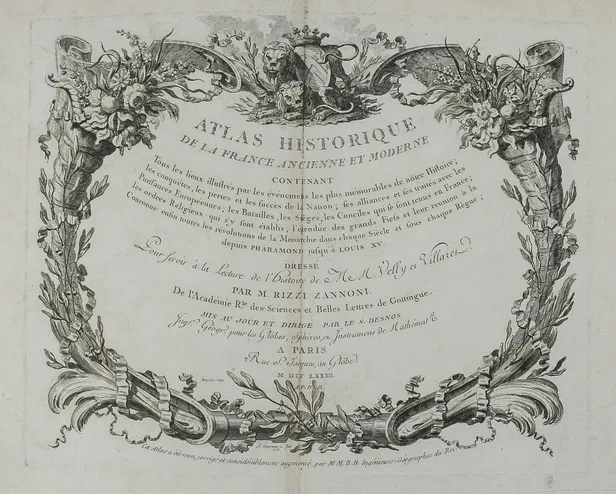 ATLAS HISTORIQUE
DE LA FRANCE ANCIENNE ET MODERNE
CONTENANT
Tous les lieux illustrés par les évenemens les plus mémorables de nôtre Histoire;
les conquêtes, les pertes et les succès de la Nation; ses alliances et ses traités avec les
Puissances Européennes; les Batailles, les Sièges, les Conciles qui se sont tenus en France;
les ordres Religieux qui s'y sont établis; l'étendue des grands Fiefs et leur réunion à la
Couronne enfin toutes les révolutions de la Monarchie dans chaque Siècle et sous chaque Règne;
depuis PHARAMOND jusqu'à LOUIS XV.
Pour servir à la Lecture de l'histoire de M M Velly et Villaret
DRESSÉ
PAR M. RIZZI ZANNONI.
De l'Académie Rle. des Sciences et Belles Lettres de Gottingue.
MIS AU JOUR ET DIRIGÉ PAR LE S. DESNOS
Ingr. Géogr. pour les Globes, Sphères, et Instrumens de Mathémat.
A PARIS
Rue St. Jacques, au Globe
M DCC LXXXII
A.P.D.R.
Cet Atlas a été revu, corrigé et considérablement augmenté, par M M. B. B. Ingénieurs-Géographes du Roi.